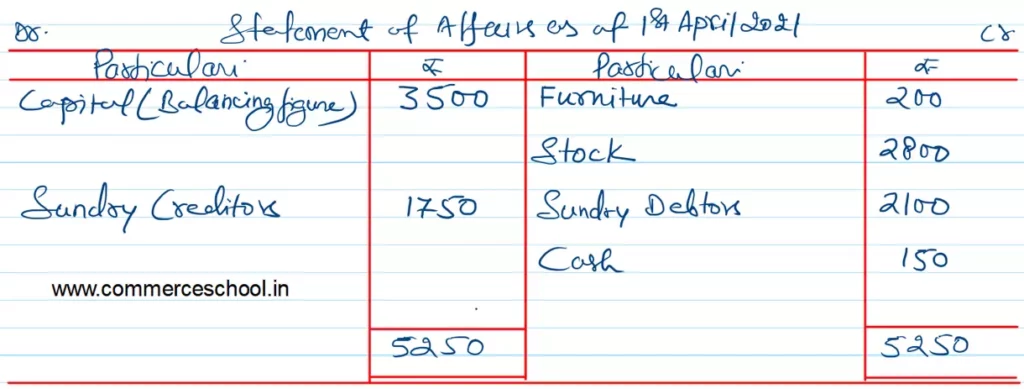 Dr. Statement of Affairs as of 1st April 2021 Cr
Particulars ₹ Particulars ₹
Capital (Balancing figure) 3500 Furniture 200
Stock 2800
Sundry Creditors 1750 Sundry Debtors 2100
Cash 150
www.commerceschool.in
5250 5250